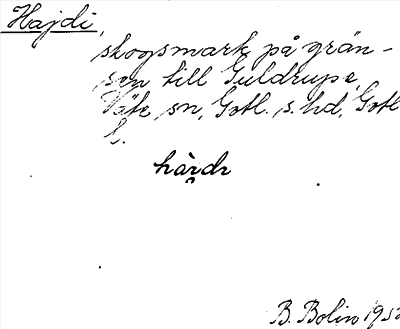 Hajdi,
skogsmark på grän-
sen till Guldrupe,
Väte sn, Gotl. s. hd, Gotl
l.
B. Bolin 195